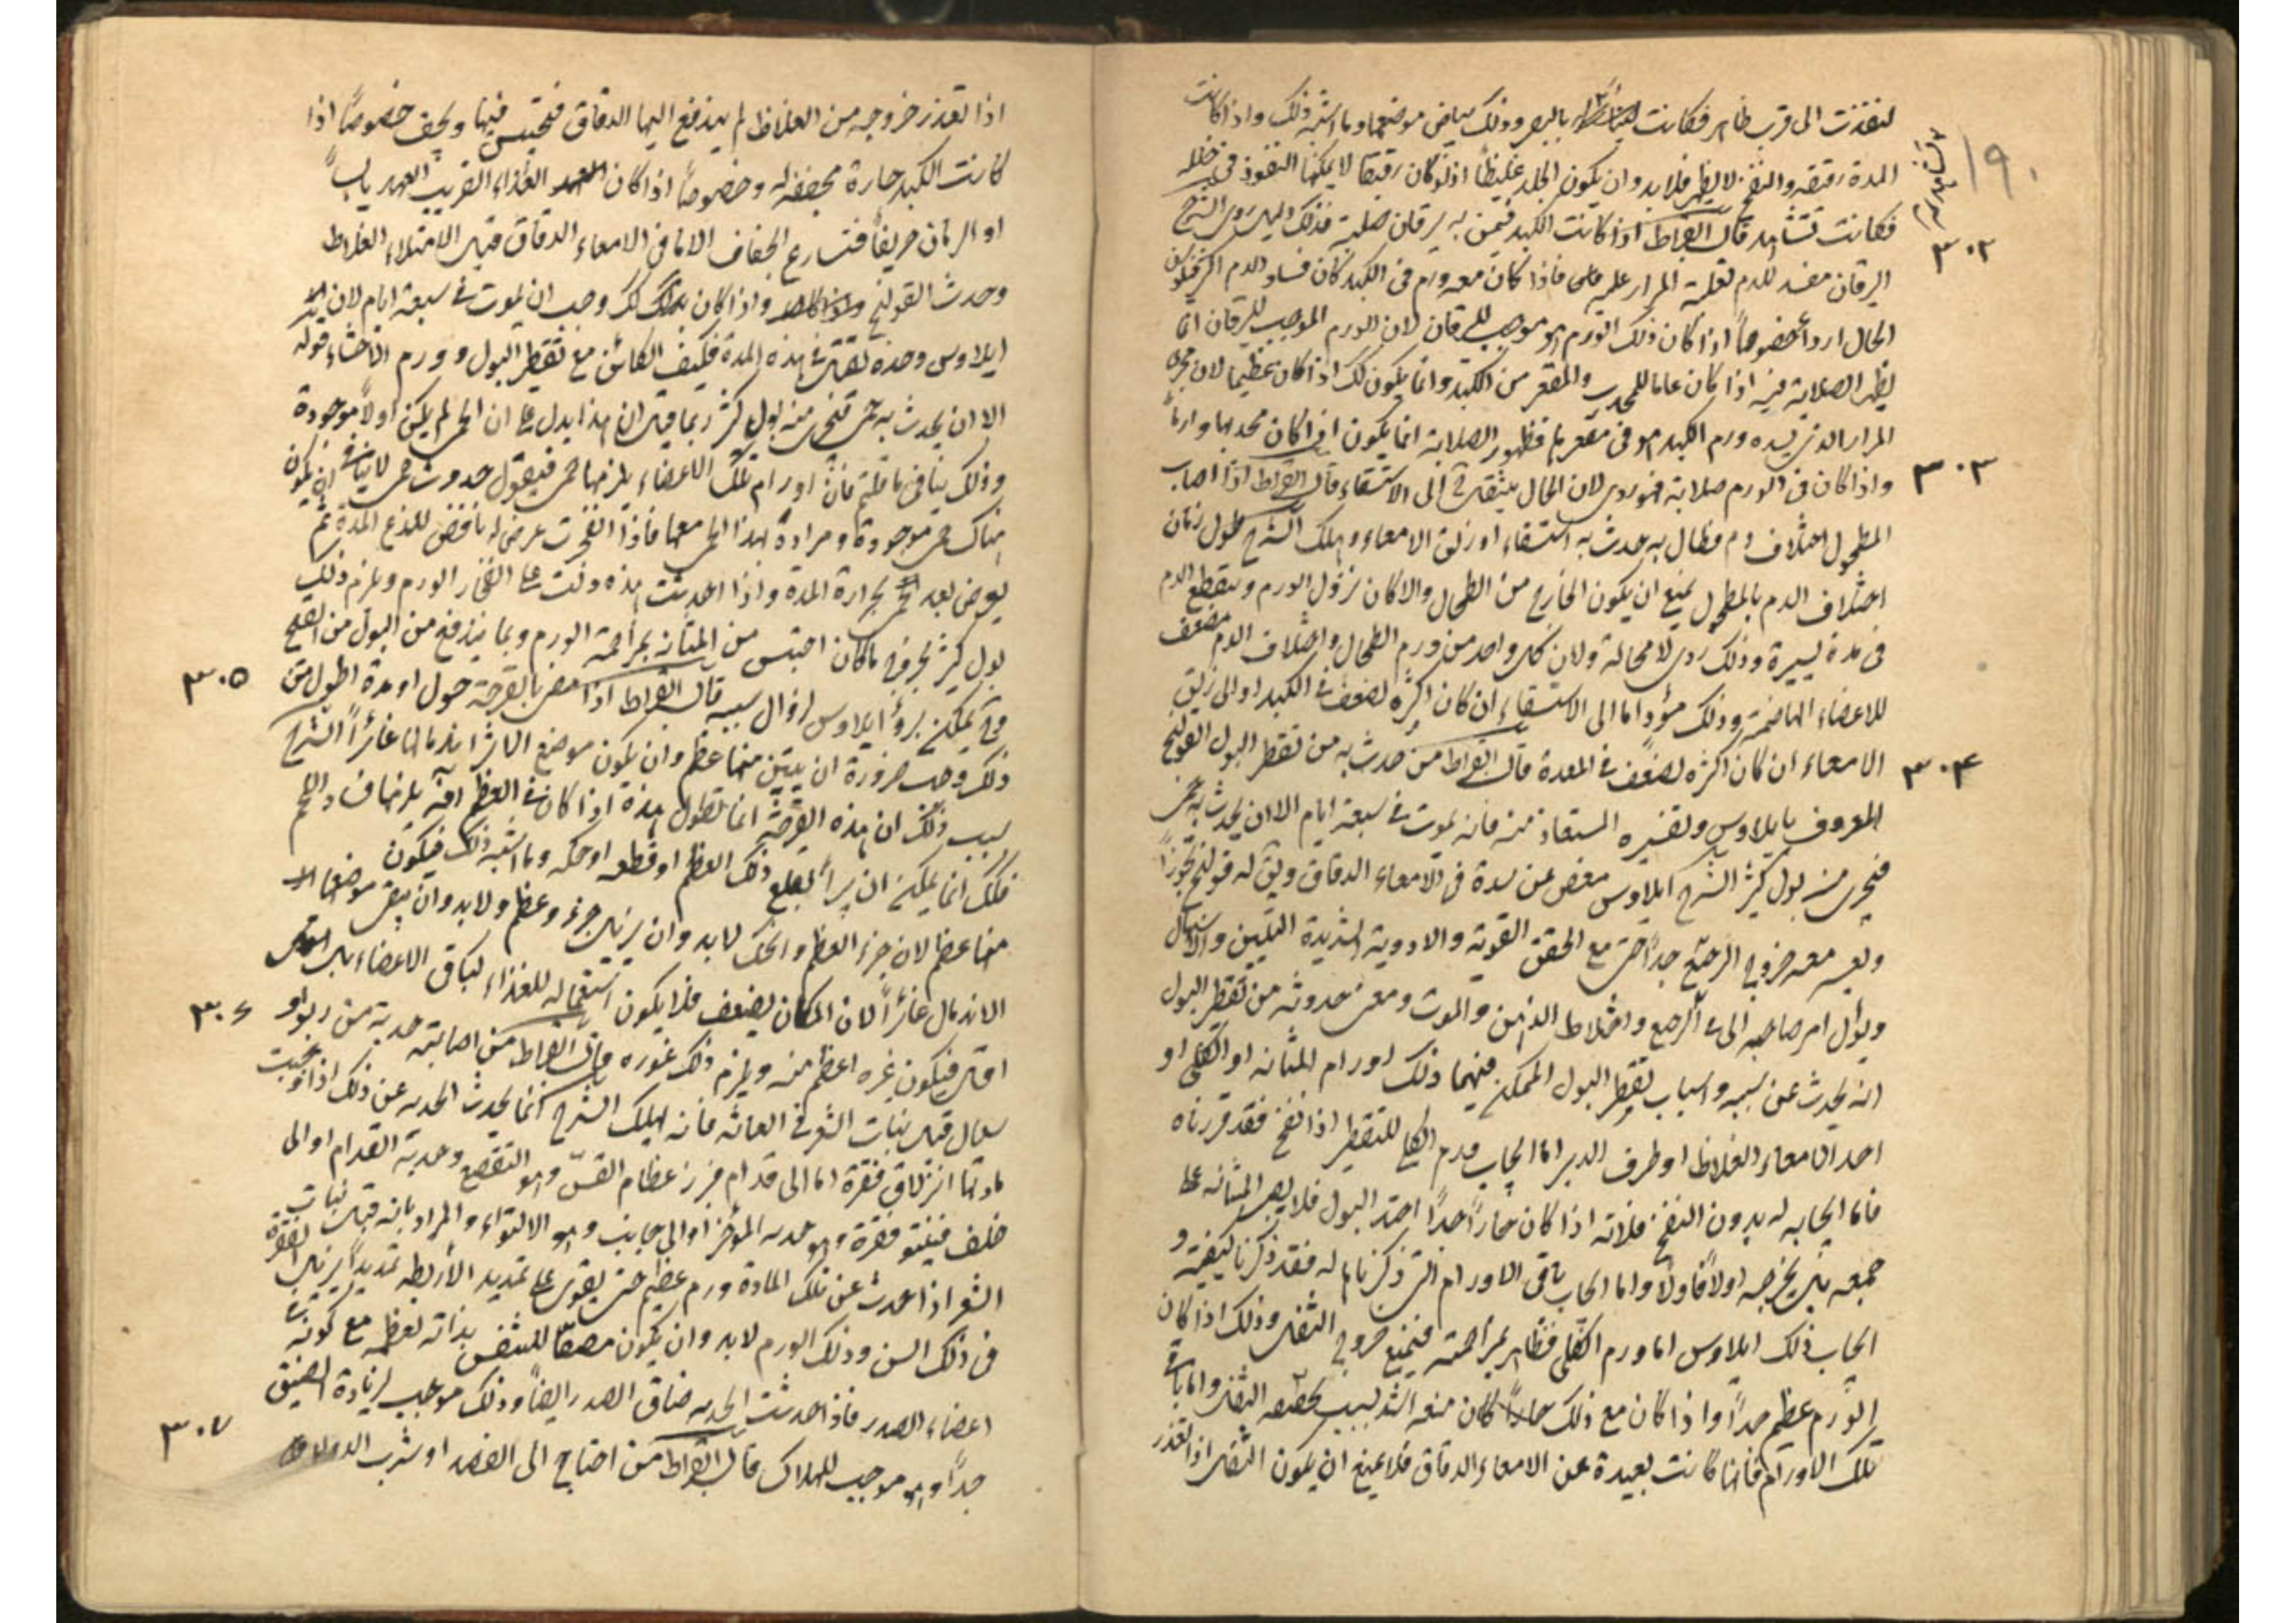 ١٩٠
لنفذت الى قرب ظاهر فكانت بالبصر وذلك ببياض موضعها وما اشبه ذلك واذا كانت
المدة رقيقة والنضج لا يظهر فلا بد وان يكون الجلد غليظا اذ لو كان رقيقا لا يمكنها النفوذ في خلله
فكانت تشاهد قال ابقراط اذا كانت الكبد فيمن به يرقان صلبة فذلك دليل ردى الشرح
٣٠٢
اليرقان مفسد للدم لغلبة المرار عليه فاذا كان معه ورم في الكبد كان فساد الدم اكثر فيكون
الحال اردأ خصوصا اذا كان ذلك الورم هو موجب لليرقان لان الورم الموجب لليرقان انما
يظهر الصلابة فيه اذا كان عاما للمحدب والمقعر من الكبد وانما يكون كك اذا كان عظيما لان مجرى
المرار الذى يسده ورم الكبد هو في مقعرها فظهور الصلابة انما يكون اذا كان محدبها وارما
واذا كان في الورم صلابة فهو ردى لان الحال ينتقل الى الاستسقاء قال ابقراط اذا اصاب
٣٠٣
المطحول اختلاف دم فطال به حدث به استسقاء او زلق الامعاء وهلك الشرح طول زمان
اختلاف الدم بالمطحول يمنع ان يكون الخارج من الطحال والا كان نزول الورم وينقطع الدم
في مدة يسيرة وذلك ردى لا محالة ولان كل واحد من ورم الطحال واختلاف الدم مضعف
للاعضاء الهاضمة وذلك مؤد اما الى الاستسقاء ان كان اكثره لضعف في الكبد او الى زلق
الامعاء ان كان اكثره لضعف في المعدة قال ابقراط من حدث به من تقطير البول القولنج
٣٠٤
المعروف بايلاوس وتفسيره المستعاذ منه فانه يموت في سبعة ايام الا ان يحدث به حمى
فيجرى منه بول كثير الشرح ايلاوس مغص عن سدة في الامعاء الدقاق ويق له قولنج تجوزا
ويعسر معه خروج الرجيع جدا حتى مع الحقن القوية والادوية الشديدة التليين والاسهال
ويؤل امر صاحبه الى قئ الرجيع واختلاط الذهن والموت ومعنى حدوثه من تقطير البول
انه يحدث عن سببه واسباب تقطير البول الممكن فيهما ذلك اورام المثانة او الكلى او
احد الامعاء الغلاظ او طرف الدبر اما ايجاب ورم الكلى للتقطير اذا نضج فقد قررناه
فاما ايجابه له بدون النضج فلانه اذا كان حارا جدا احتد البول فلا يصبر المثانة على
جمعه بل يخرجه اولا فاولا واما ايجاب باقى الاورام التى ذكرناها له فقد ذكرنا كيفيته و
ايجاب ذلك ايلاوس اما ورم الكلى فظاهر بمزاحمته فيمنع خروج الثفل وذلك اذا كان
الورم عظيم جدا واذا كان مع ذلك حارا كان منعه اشد لسبب تجفيفه الثفل واما باقى
تلك الاورام فانها كانت بعيدة عن الامعاء الدقاق فلا يمنع ان يكون الثفل اذا تعذر
اذا تعذر خروجه من الغلاظ لم يندفع اليها الدقاق فتحتبس فيها ويجف خصوصا اذا
كانت الكبد حارة مجففة له وخصوصا اذا كان الغذاء القريب العهد يابسا
او الزمان خريفا فتسارع الجفاف الى ما في الامعاء الدقاق قبل الامتلاء الغلاظ
وحدث القولنج واذا كان كك وجب ان يموت في سبعة ايام لان
ايلاوس وحده يقتل في هذه المدة فكيف الكائن مع تقطير البول وورم الاحشاء قوله
الا ان يحدث به حمى فتجرى منه بول كثير ربما قيل ان هذا يدل على ان الحمى لم يكن اولا موجودة
وذلك ينافى ما قلتم فان اورام تلك الاعضاء يلزمها حمى فيقول حدوث حمى لا ينافى ان يكون
هناك حمى موجودة ومراده بهذا الحمى معها فاذا انفجرت عرض له نافض للذع المدة ثم
يعرض بعد الحمى لحرارة المدة واذا حدثت هذه دلت على انفجار الورم ويلزم ذلك
بول كثير لخروج ما كان احتبس من المثانة بمزاحمة الورم وبما يندفع من البول من القيح
فح يمكن برؤ ايلاوس لزوال سببه قال ابقراط اذا مضى بالقرحة حول او مدة اطول من
٣٠٥
ذلك وجب ضرورة ان يتبين منها عظم وان يكون موضع الاثر اندمالها غائرا الشرح
سبب ذلك ان هذه القرحة انما تطول مدة اذا كان في العظم آفة يلزمها فساد اللحم
فلك انما يمكن ان يبرأ بقلع ذلك العظم او قطعه او حكه وما اشبه ذلك فيكون
منها عظما لان جزء العظم والحك لا بد وان يزيل جزء وعظم ولا بد وان يبقى موضعها
الاندمال غائرا لان المكان يضعف فلا يكون استعماله للغذاء لباقى الاعضاء بل
اقل فيكون غيره اعظم منه ويلزم ذلك غوره قال ابقراط من اصابته حدبة من ربو او
٣٠٦
سعال قبل نبات الشعر في العانة فانه يهلك الشرح انما يحدث الحدبة عن ذلك اذا اوجبت
مادتها انزلاق فقرة اما الى قدام فبرز عظام القس وهو التقصع وحدبة القدام او الى
خلف فينتو فقرة وهو حدبة المؤخر او الى جانب وهو الالتواء والمراد بانه قبل نبات
الشعر اذا حدث عن تلك المادة ورم عظيم حتى يقوى على تمديد الاربطة تمديدا يزيل الفقرة
في ذلك السن وذلك الورم لا بد وان يكون مضيقا للنفس بذاته لعظمه مع كونه في
اعضاء الصدر فاذا حدثت الحدبة ضاق الصدر ايضا وذلك موجب لزيادة الضيق
جدا وهو موجب للهلاك قال ابقراط من احتاج الى الفصد او شرب الدواء
٣٠٧